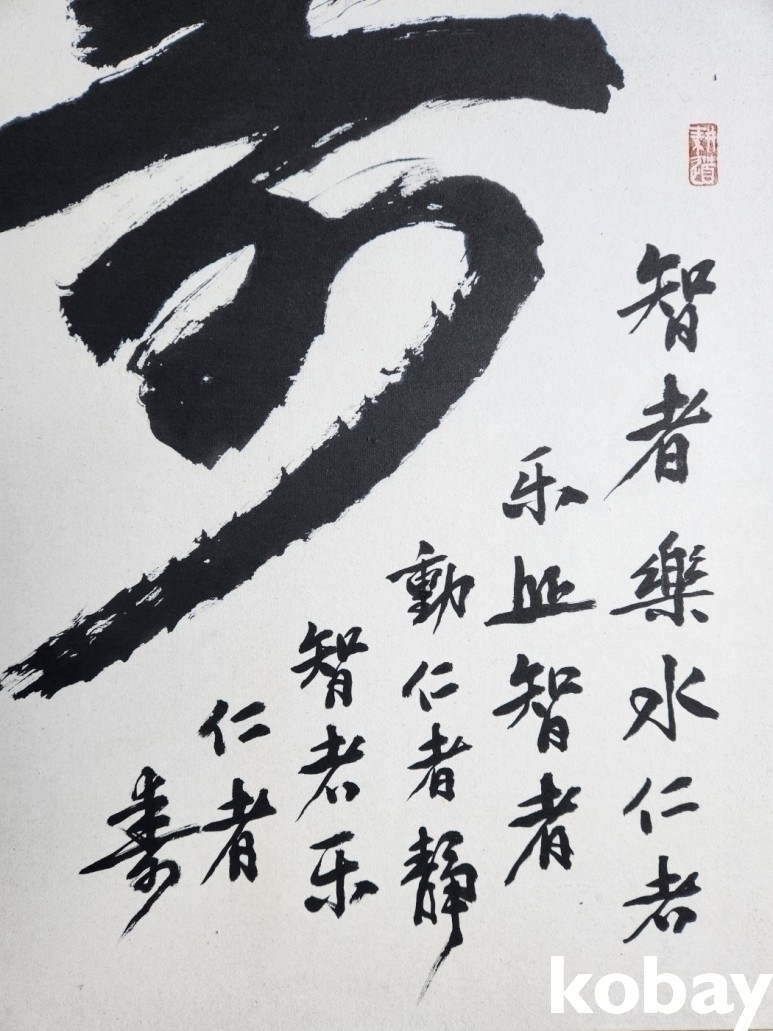 耕道
智者樂水仁者
乐山智者
動仁者静
智者乐
仁者
寿
kobay